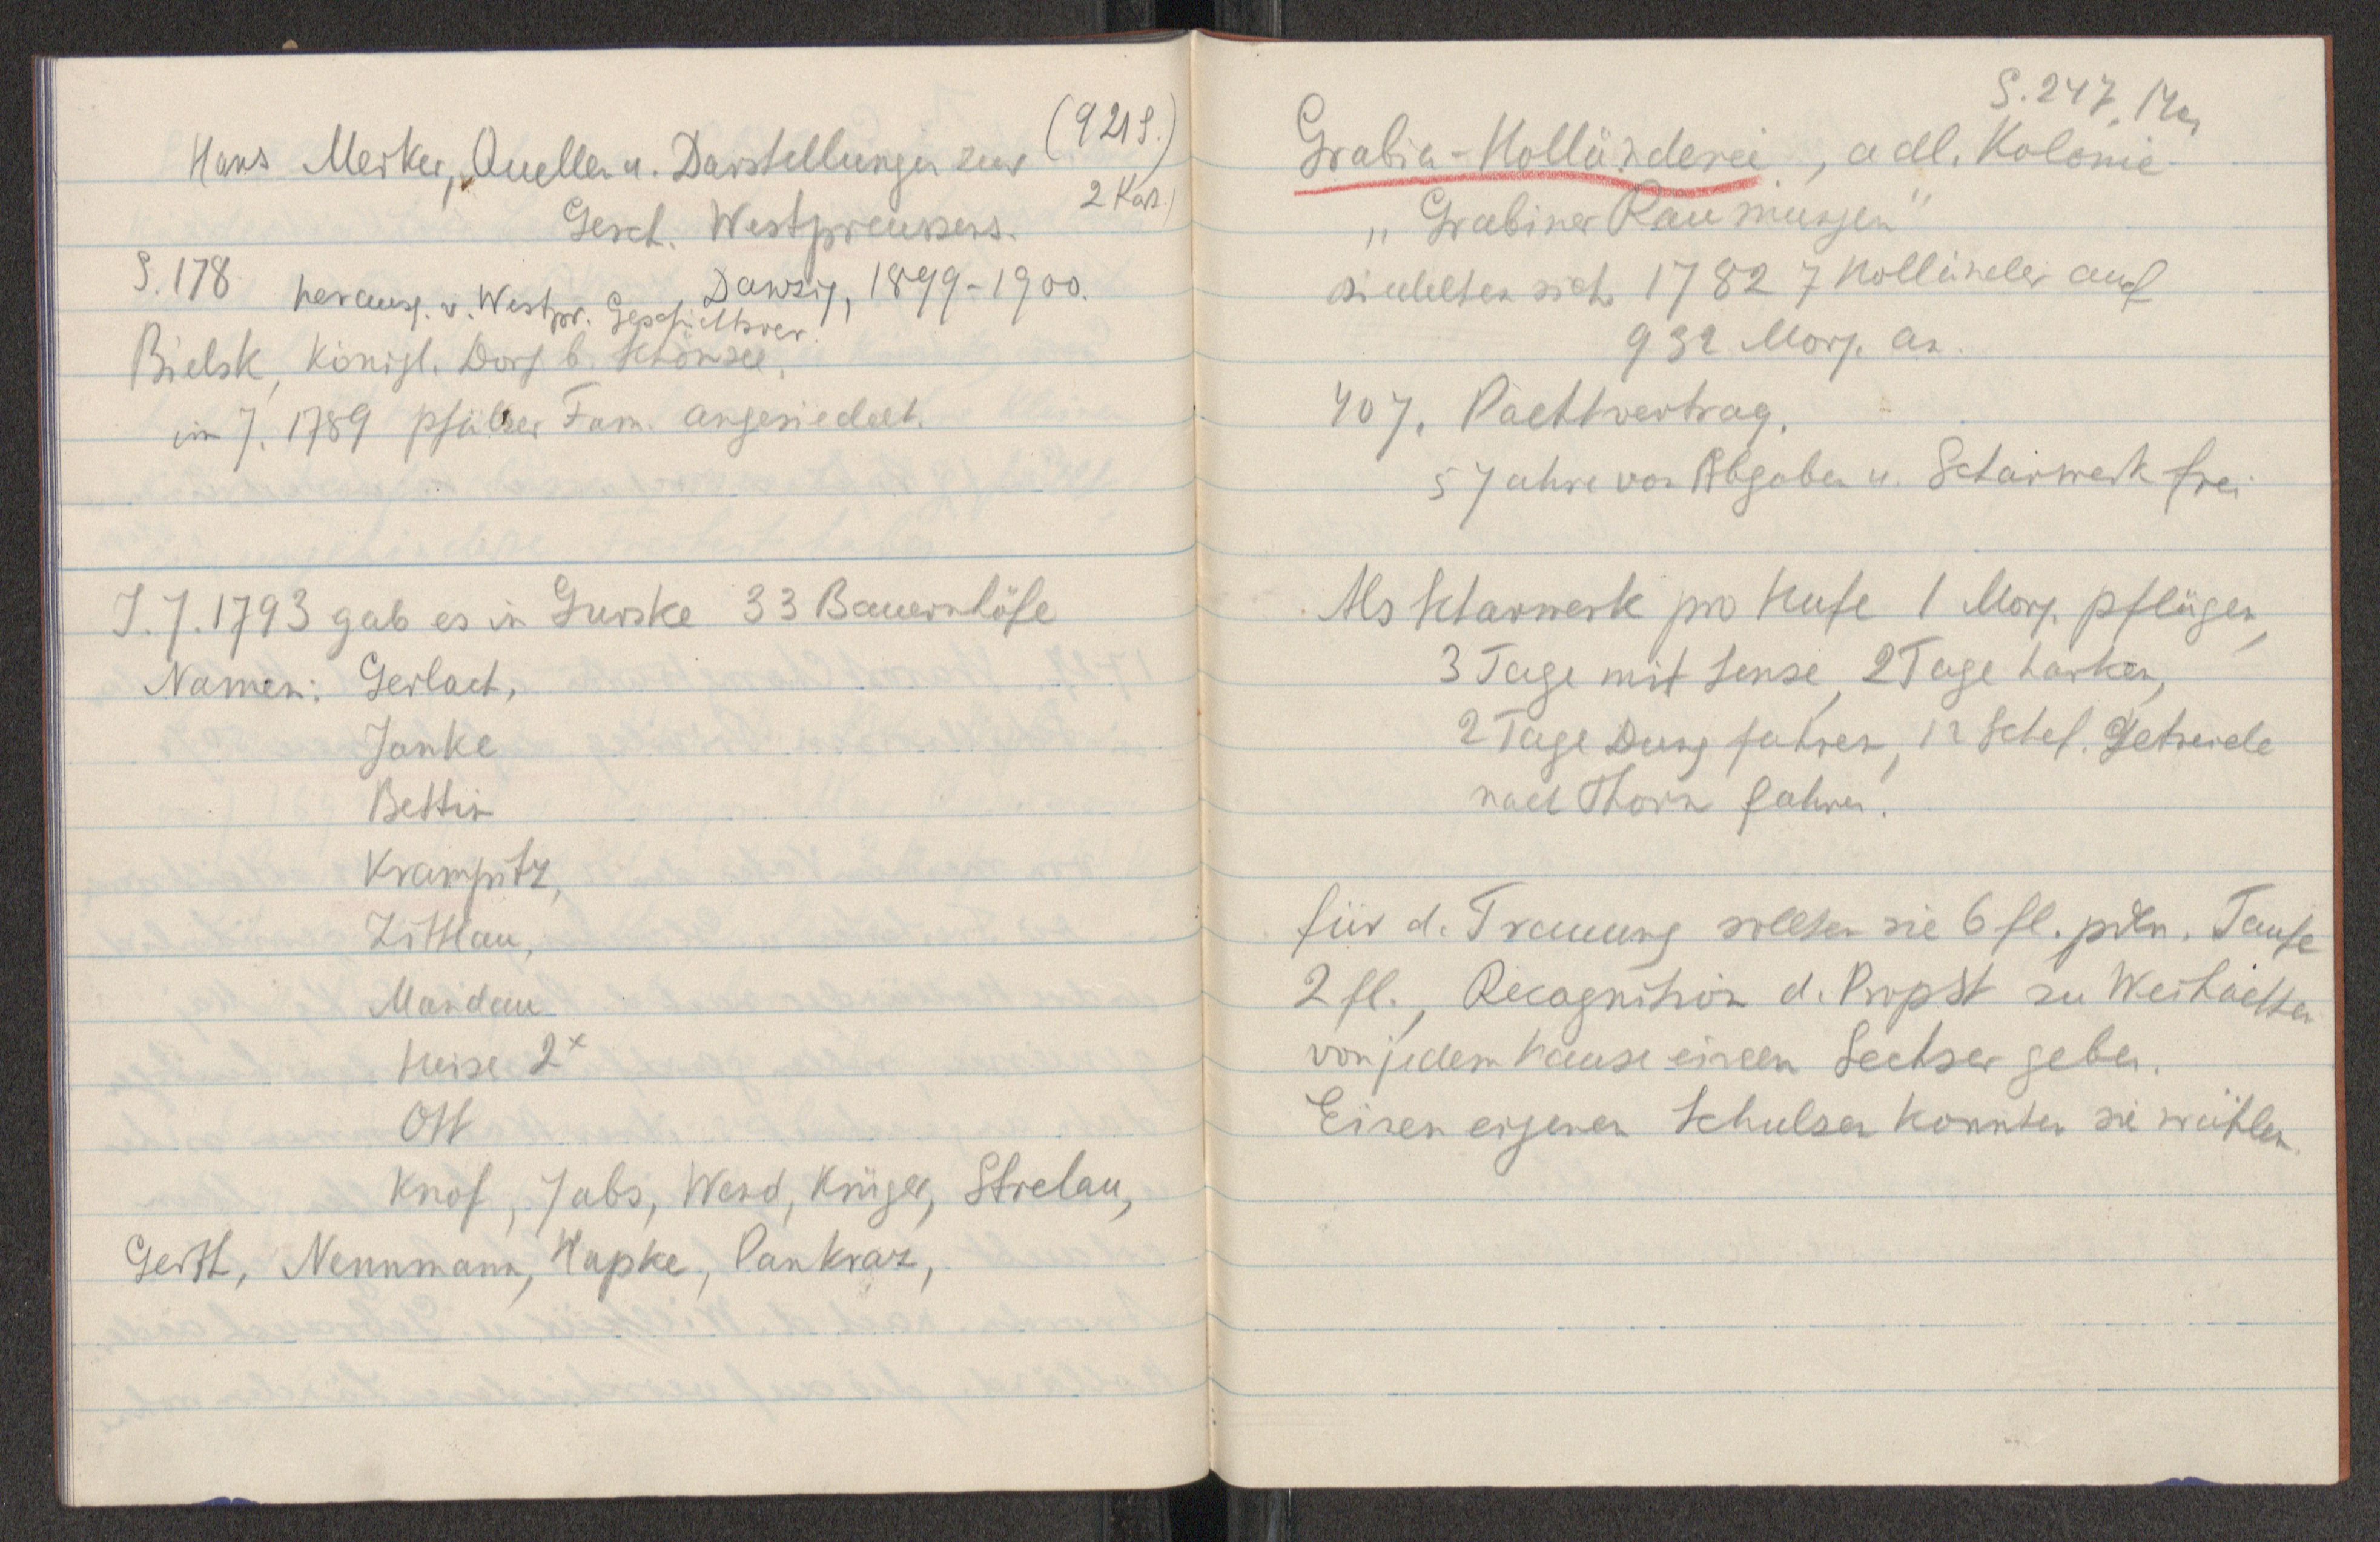 (921 S.)
Hans Merker, Quellen u. Darstellungen zur
2 Kar.)
Gesch. Westpreussens.
S. 178
herausg. v. Westpr. Geschichtsver. Danzig, 1899-1900.
Bielsk, Königl. Dorf b. Schönsee.
im J. 1789 pfälzer Fam. angesiedelt.
I. J. 1793 gab es in Gurske 33 Bauernhöfe
Namen: Gerlach,
Janke
Bettin
Krampitz,
Zittlau,
Mandau
Heise 2x
Ott
Knof, Jabs, Wend, Krüger, Strelau,
Gerth, Nennmann, Hapke, Pankraz,
S. 247,
Grabia-Holländerei, adl. Kolonie
"Grabiner Räumungen"
siedelten sich 1782 7 Holländer auf
932 Morg. an.
40 J. Pachtvertrag.
5 Jahre von Abgaben u. Scharwerk frei
Als Scharwerk pro Hufe 1 Morg. pflügen,
3 Tage mit Sense, 2 Tage harken,
2 Tage Dung fahren, 12 Schef. Getreide
nach Thorn fahren.
für d. Trauung sollten sie 6 fl. poln. Taufe
2 fl., Recognition d. Propst zu Weihachten
von jedem Hause einen Sechser geben.
Einen eigenen Schulzen konnten sie wählen.